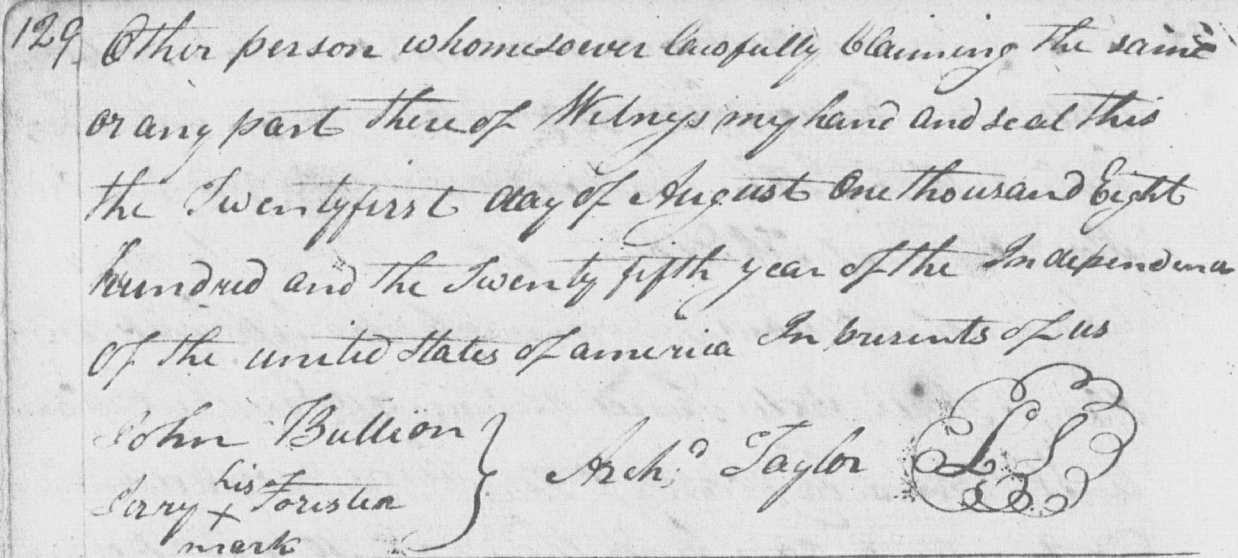 129 Other person whomesoever lawfully Claiming the same
or any part there of Witness my hand and seal this
the Twentyfirst day of August One thousand Eight
hundred and the Twenty fifth year of the Independence
Of the united States of america In presents of us
John Bullion
Jary his Forister
x
mark
Archd. Taylor
L S